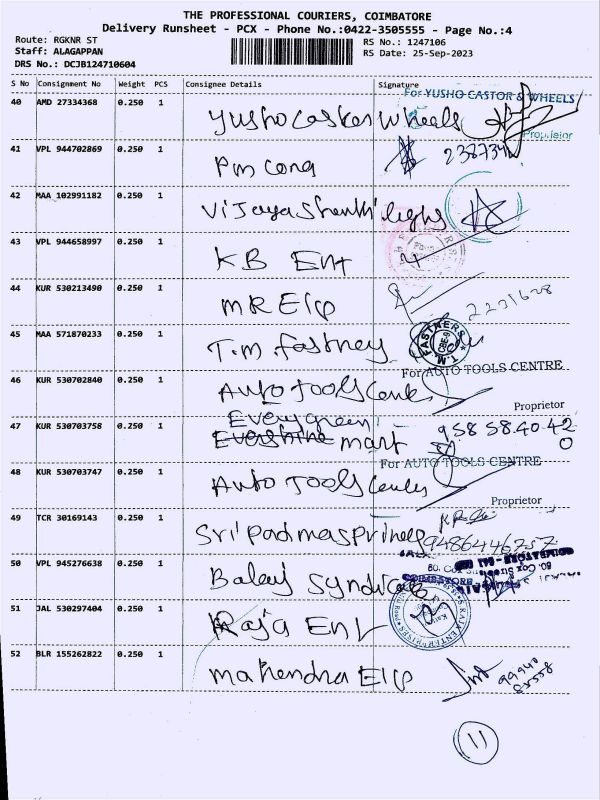 THE PROFESSIONAL COURIERS, COIMBATORE
Delivery Runsheet - PCX - Phone No.:0422-3505555 - Page No.:4
Route: RGKNR ST
RS No.: 1247106
Staff: ALAGAPPAN
RS Date: 25-Sep-2023
DRS No.: DCJB124710604
S No Consignment No Weight PCS Consignee Details Signature
For YUSHO CASTOR & WHEELS
40 AMD 27334368 0.250 1 Yusho Caskor Wheels
Proprietor
41 VPL 944702869 0.250 1 Pm Cong
42 MAA 102991182 0.250 1 Vijaya Shanthi lights
43 VPL 944658997 0.250 1 KB Ent
44 KUR 530213490 0.250 1 MR Elp 2231628
45 MAA 571870233 0.250 1 T.m. fastney
T.M. FASTNERS CBE-9
For AUTO TOOLS CENTRE
46 KUR 530702840 0.250 1 Auto Tools Cente
Proprietor
Evergreen
47 KUR 530703758 0.250 1 Evershine mart 958 58.40 42 0
For AUTO TOOLS CENTRE
48 KUR 530703747 0.250 1 Auto Tools Centes
Proprietor
49 TCR 30169143 0.250 1 Sri Padma Springs
9486446257
50 VPL 945276638 0.250 1 Balaj Syndicate
COIMBATORE
51 JAL 530297404 0.250 1 Raja Ent
RAJA ENTERPRISES
52 BLR 155262822 0.250 1 Mahendra Elp 99940 85558
11